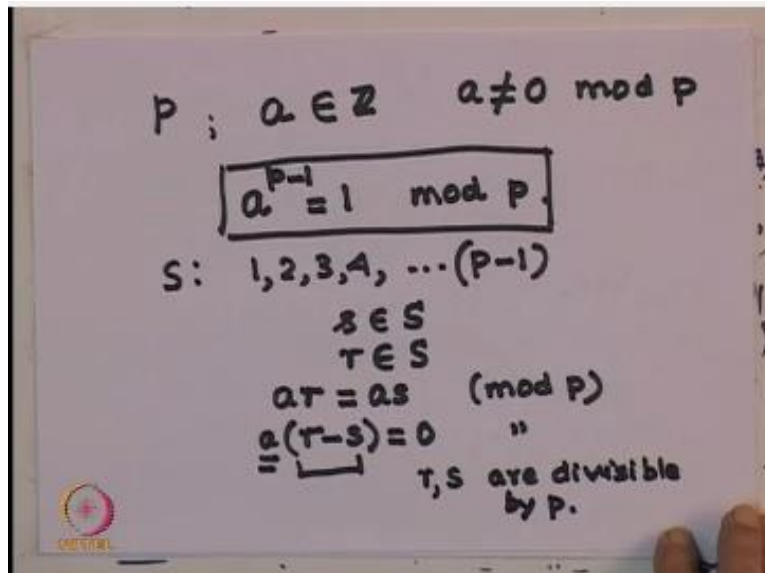 P ; a ∈ Z a ≠ 0 mod p
a^{p-1} = 1 mod p.
S: 1, 2, 3, 4, ... (p-1)
s ∈ S
r ∈ S
ar = as (mod p)
a(r-s) = 0 "
r, s are divisible
by p.
NPTEL